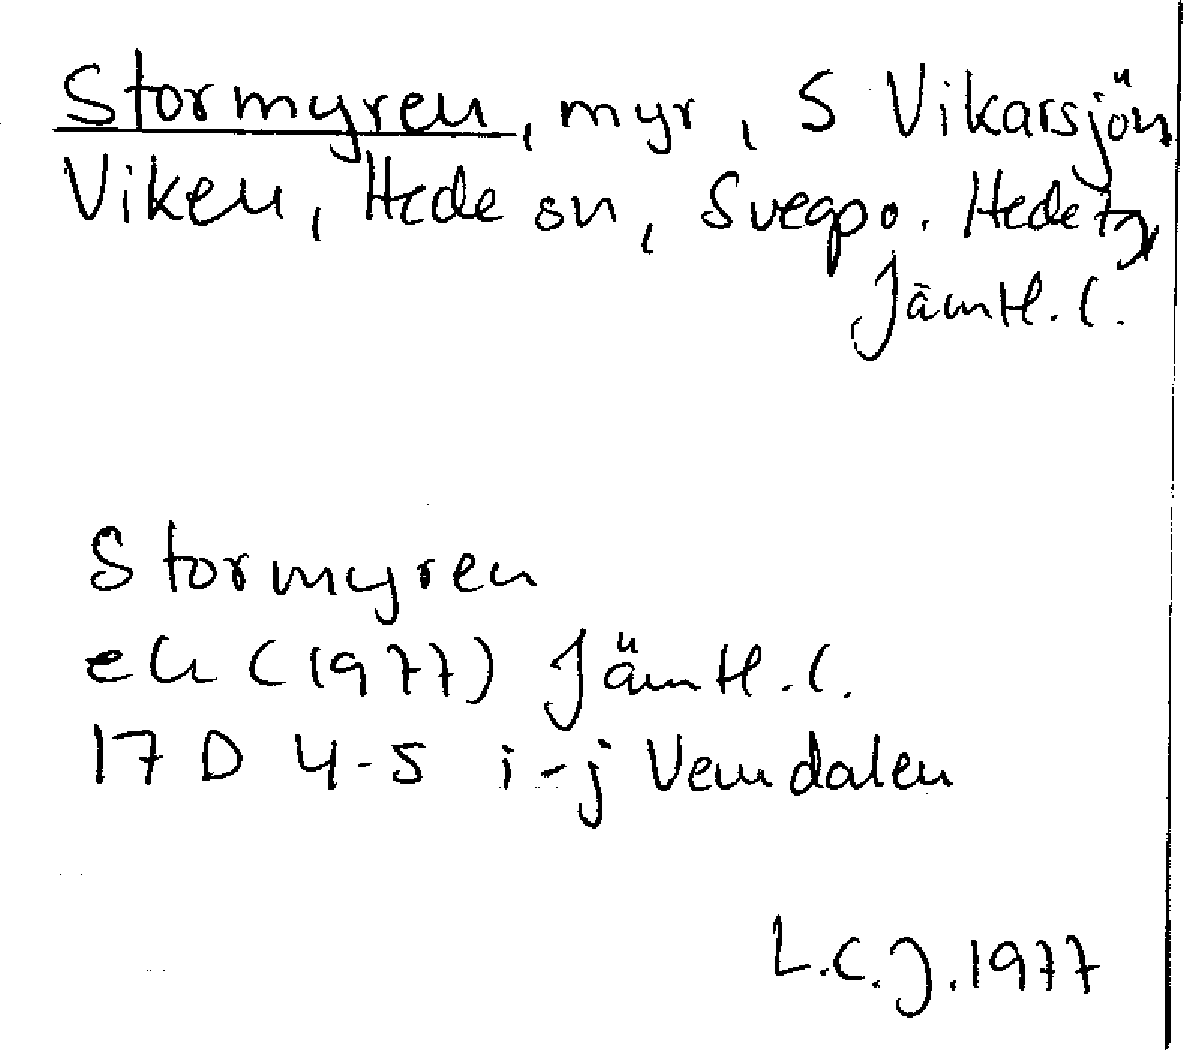 Stormyren, myr, S Vikarsjön
Viken, Hede sn, Svegpo. Hede tg
Jämtl. l.
Stormyren
ek (1977) Jämtl. l.
17 D 4-5 i-j Vemdalen
L.C.J. 1977